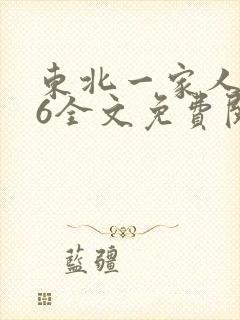 東北一家人
6全文免費閱
藍疆